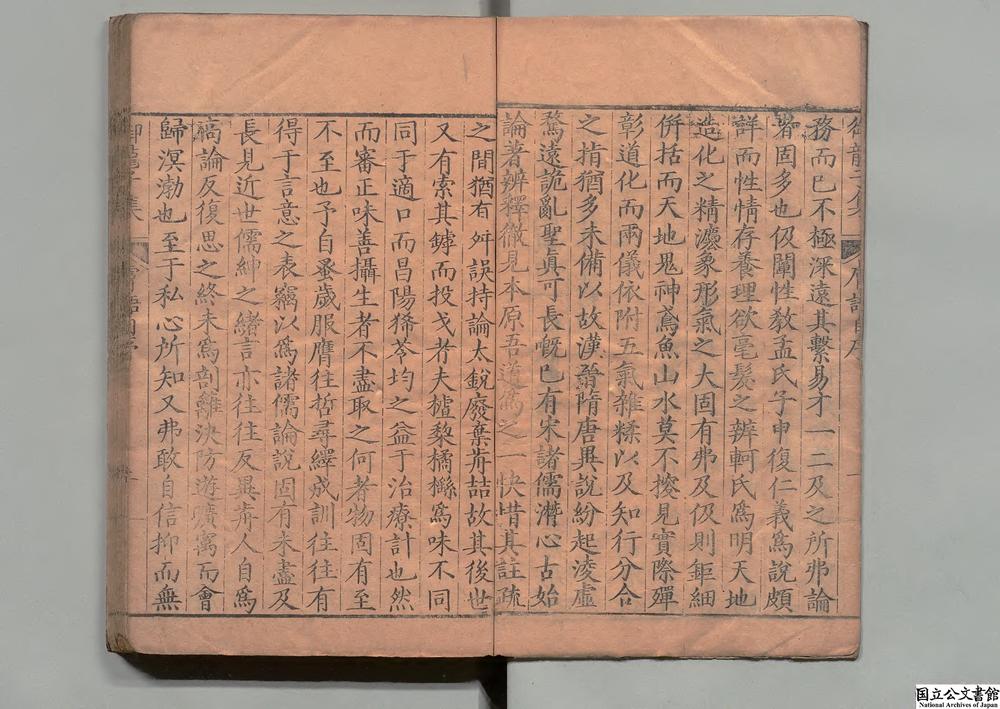 務而已不極深遠其繫易才一二及之所弗論
者固多也伋闡性敎孟氏子申復仁義爲說頗
詳而性情存養理欲毫髮之辨軻氏爲明天地
造化之精瀍象形氣之大固有弗及伋則鉅細
併括而天地鬼神鳶魚山水莫不揆見實際殫
彰道化而兩儀依附五氣雜糅以及知行分合
之指猶多未備以故漢晉隋唐異說紛起淩虛
騖遠詭亂聖眞可長嘅已有宋諸儒潛心古始
論著辨釋徹見本原吾道爲之一快惜其註疏
之間猶有舛誤持論太銳廢棄前喆故其後世
又有索其鏬而投戈者夫樝棃橘櫾爲味不同
同于適口而昌陽豨苓均之益于治療計也然
而審正味善攝生者不盡取之何者物固有至
不至也予自蚤歲服膺往哲尋繹成訓往往有
得于言意之表竊以爲諸儒論說固有未盡及
長見近世儒紳之緖言亦往往反異前人自爲
高論反復思之終未爲剖離決防遊曠寓而會
歸溟渤也至于私心所知又弗敢自信抑而無
国立公文書館
National Archives of Japan